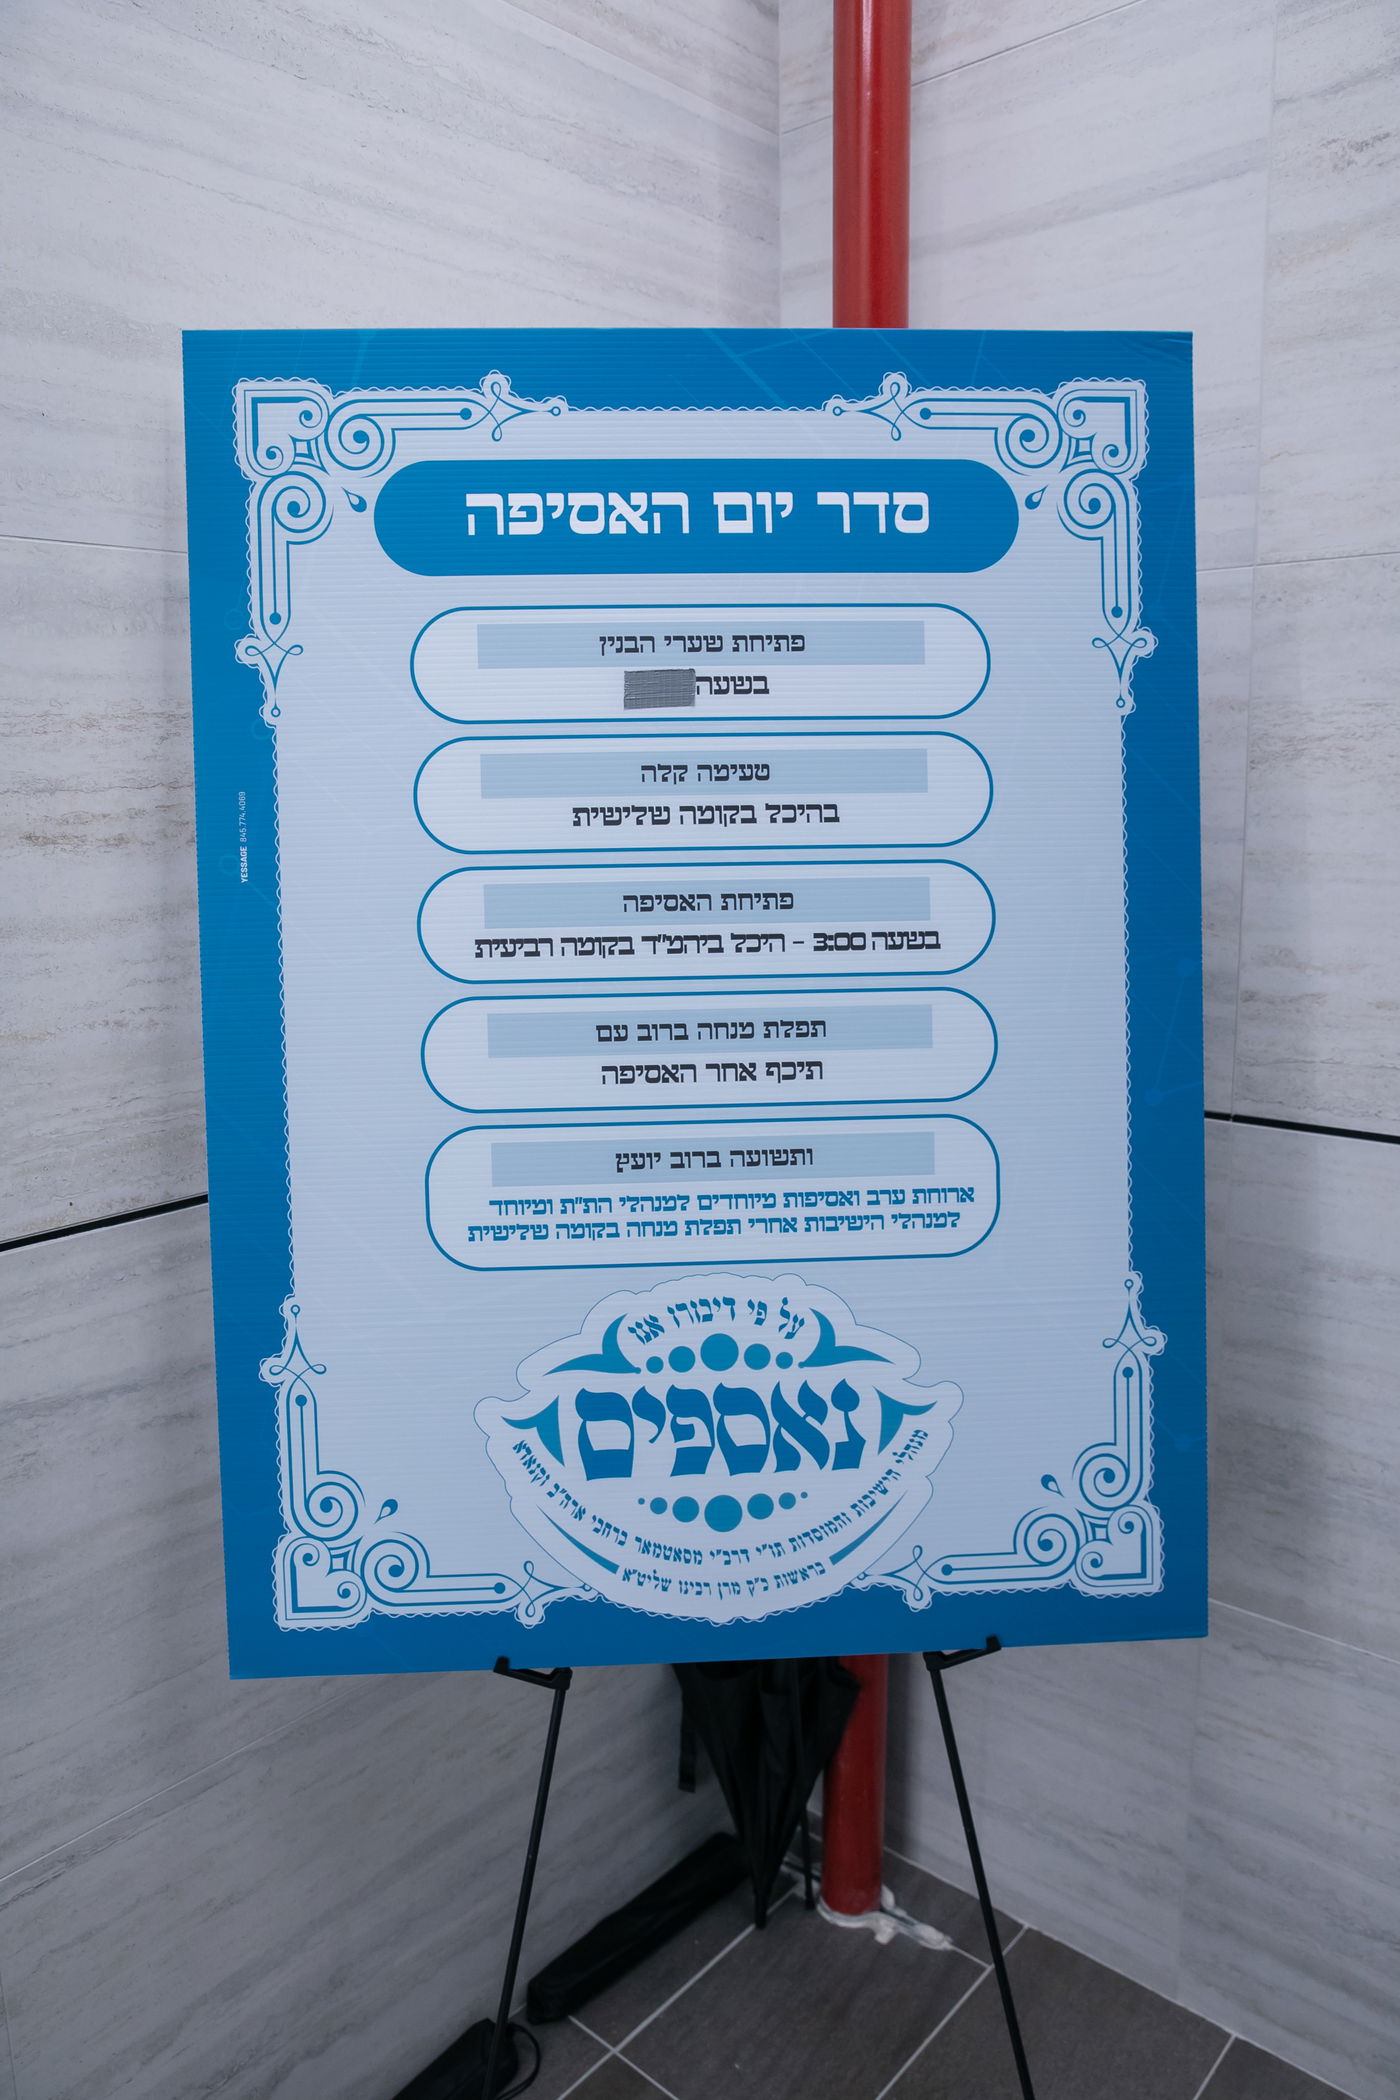 סדר יום האסיפה
פתיחת שערי הבנין
בשעה
טעימה קלה
בהיכל בקומה שלישית
פתיחת האסיפה
בשעה 3:00 - היכל ביהמ"ד בקומה רביעית
תפלת מנחה ברוב עם
תיכף אחר האסיפה
ותשועה ברוב יועץ
ארוחת ערב ואסיפות מיוחדים למנהלי הת"ת ומיוחד
למנהלי הישיבות אחרי תפלת מנחה בקומה שלישית
על פי דיבורו אנו
נאספים
מנהלי הישיבות והמוסדות תו"י דרב"י מסאטמאר ברחבי ארה"ב וקנאדא
בראשות כ"ק מרן רבינו שליט"א
YESSAGE 845.774.4069